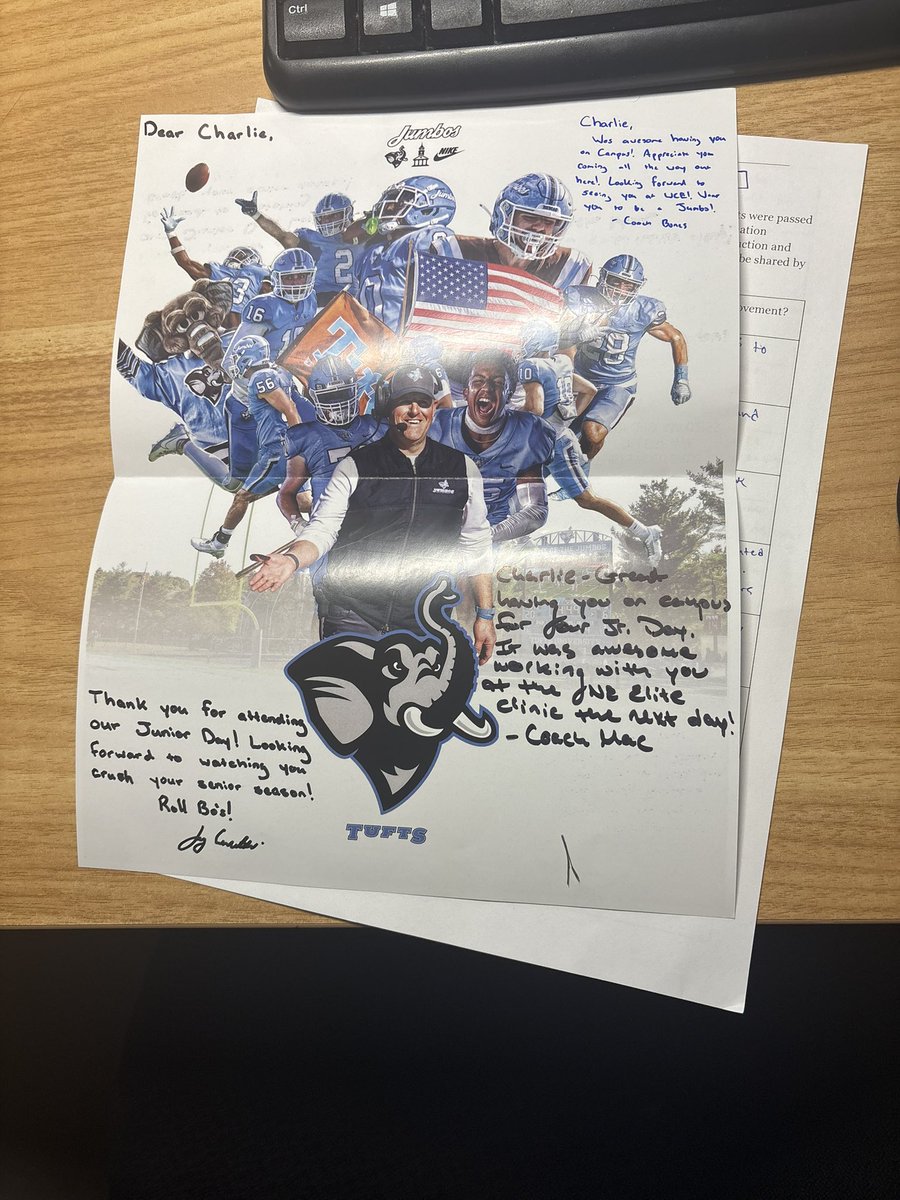 Ctrl
Dear Charlie,
Jumbos
NIKE
Charlie,
Was awesome having you
on Campus! Appreciate you
coming all the way out
here! Looking forward to
seeing you at
you to be a Jumbo!
- Coach Bones
2
3
16
56
10
28
JUMBOS
Charlie - Great
having you on campus
for your Jr. Day.
It was awesome
working with you
at the NE Elite
Clinic the next day!
- Coach Mac
Thank you for attending
our Junior Day! Looking
forward to watching you
crush your senior season!
Roll Bo's!
TUFTS
s were passed
ation
ction and
be shared by
ovement?
to